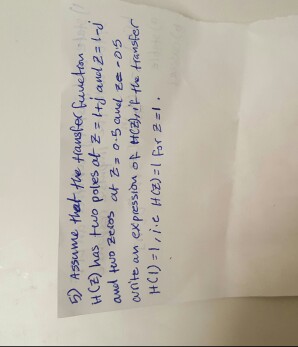 5) Assume that the transfer function
H(z) has two poles at z = 1+j and z = 1-j
and two zeros at z = 0.5 and z = -0.5
write an expression of H(z), if the transfer
H(1) = 1, i.e H(z) = 1 for z = 1.